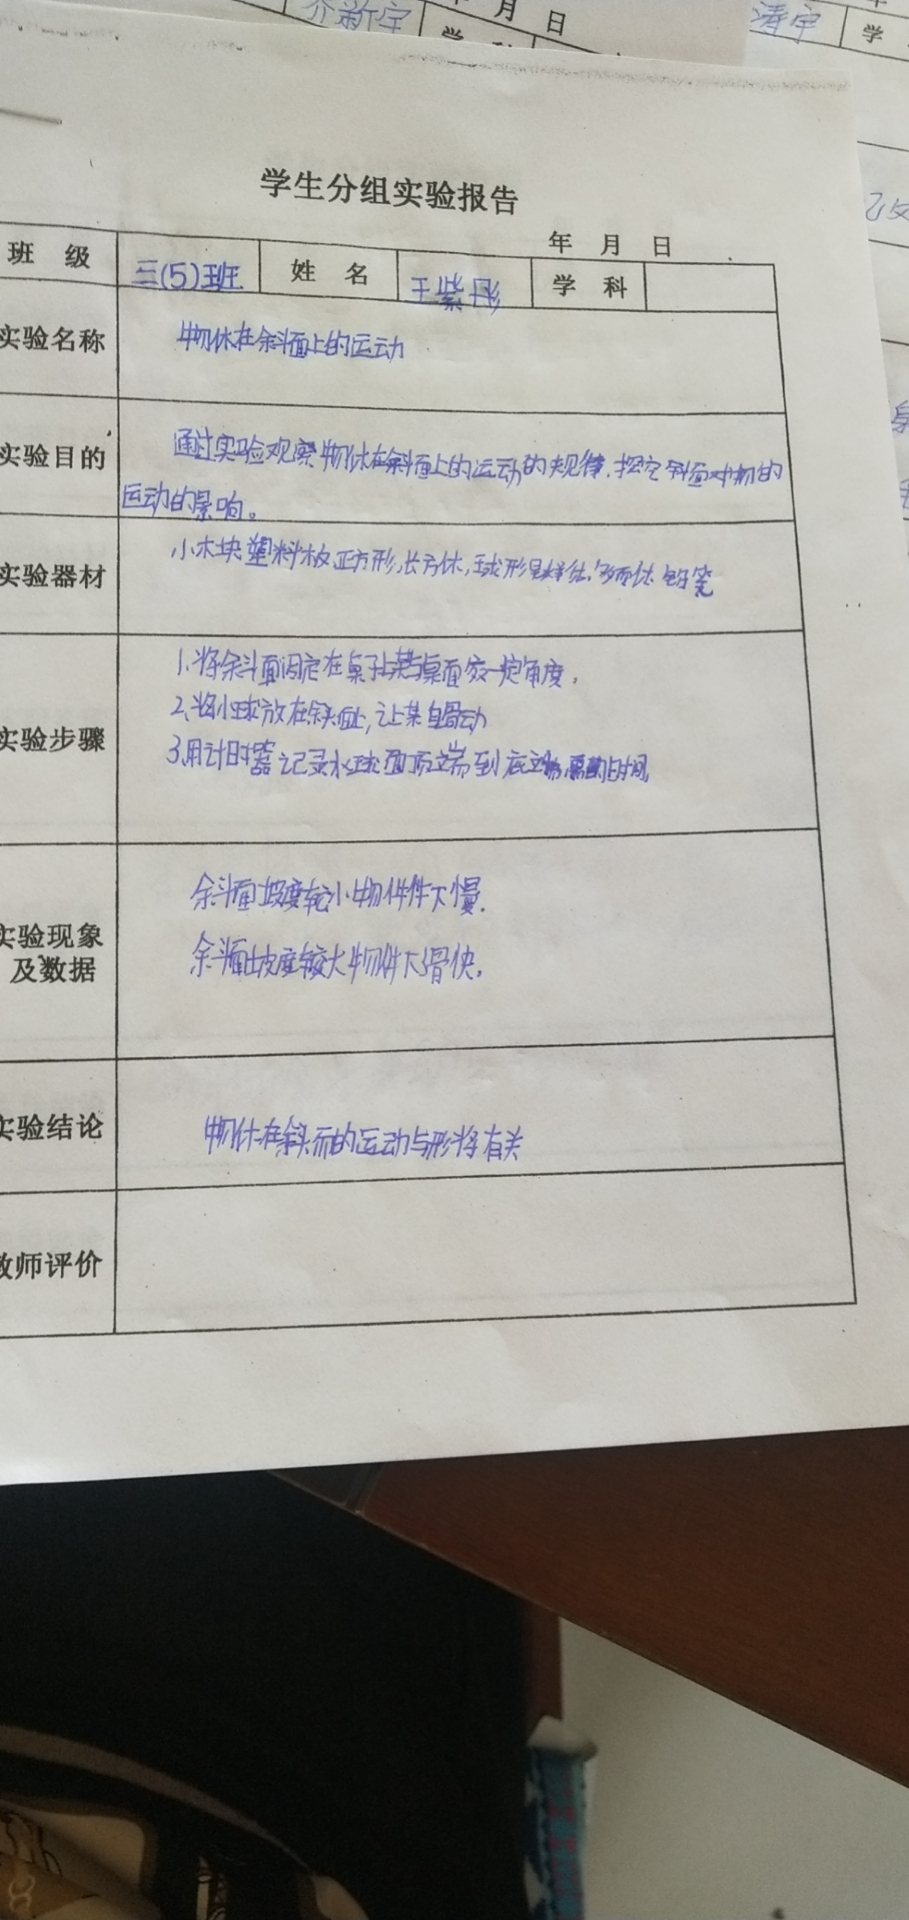 年 月 日
学
学
学生分组实验报告
年 月 日
班 级 三(5)班 姓 名 王紫彤 学 科
实验名称 物体在斜面上的运动
实验目的 通过实验观察物体在斜面上的运动的规律,探究斜面对物的
运动的影响。
实验器材 小木块 塑料板 正方形,长方体,球形
实验步骤 1.将斜面固定在桌子上与桌面成一定角度。
2.将小球放在斜面上,让其自滑动
3.用计时器记录小球 顶端到底端 时间
实验现象
及数据
斜面坡度较小物件件下慢.
斜面坡度较大物件下滑快.
实验结论 物体在斜面的运动与形状有关
教师评价